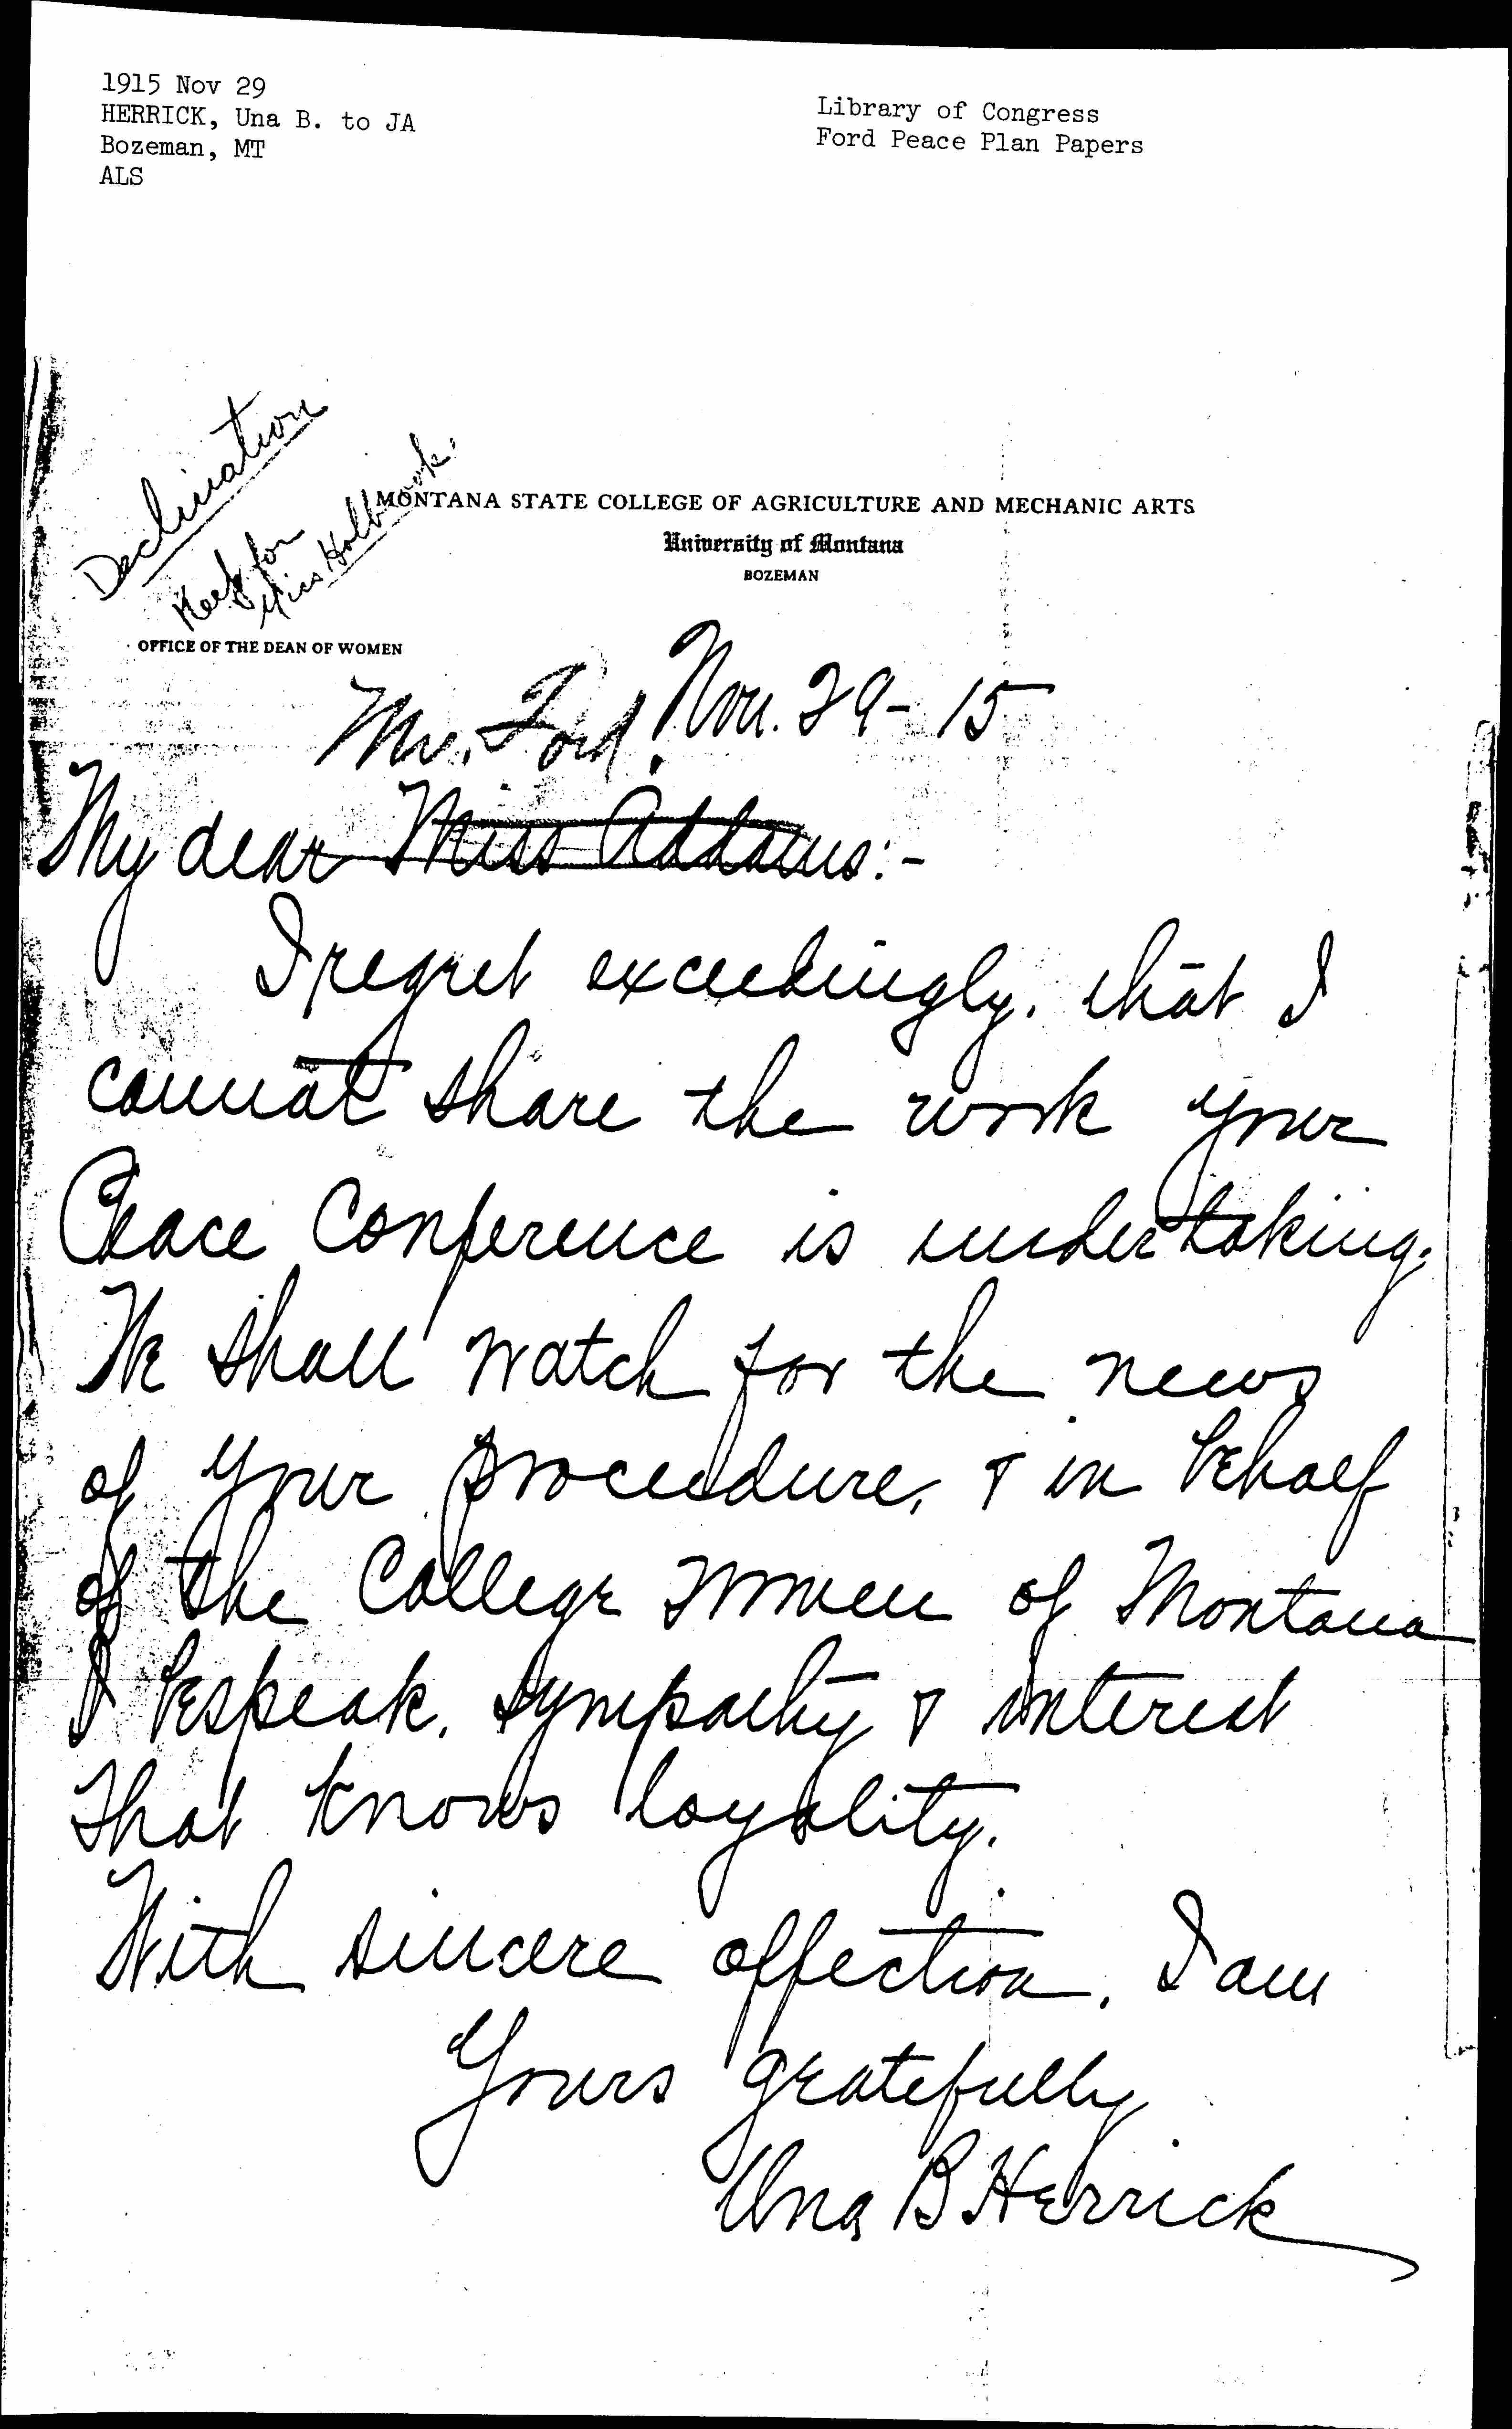 1915 Nov 29
HERRICK, Una B. to JA
Bozeman, MT
ALS
Library of Congress
Ford Peace Plan Papers
Declination
Keep for
Miss Holbrook.
MONTANA STATE COLLEGE OF AGRICULTURE AND MECHANIC ARTS
University of Montana
BOZEMAN
OFFICE OF THE DEAN OF WOMEN
Nov. 29-15
Mr. Ford.
My dear Miss Addams:-
I regret exceedingly, that I
cannot share the work your
Peace Conference is undertaking.
We shall watch for the news
of your proceedure, & in behalf
of the College women of Montana
I bespeak, sympathy & interest
that knows loyality.
With sincere affection, I am
Yours gratefully
Una B Herrick